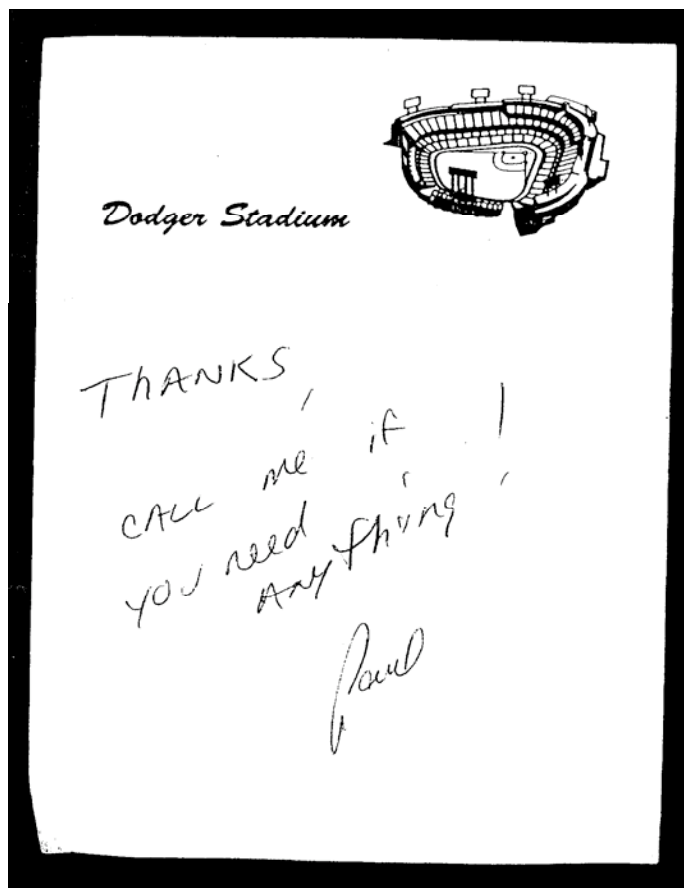 Dodger Stadium
THANKS,
CALL me if
you need
ANYthing!
Paul